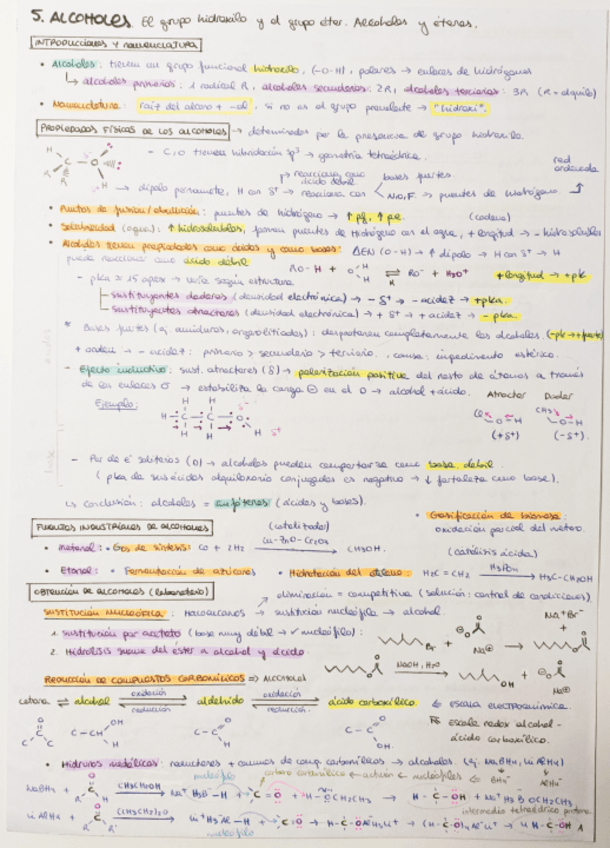 5. ALCOHOLES El grupo hidroxilo y el grupo éter. Alcoholes y éteres.
INTRODUCCIONES Y NOMENCLATURA
• Alcoholes: tienen un grupo funcional hidroxilo, (-O-H), polares → enlaces de hidrógenos
↳ alcoholes primarios: 1 radical R, alcoholes secundarios: 2R, alcoholes terciarios: 3R (R = alquilo)
• Nomenclatura: raíz del alcano + -ol, si no es el grupo prevalente → "hidroxi".
PROPIEDADES FÍSICAS DE LOS ALCOHOLES → determinados por la presencia de grupo hidroxilo.
- C, O tienen hibridación sp³ → geometría tetraédrica.
red ordenada
reacciona como ácido débil
bases fuertes
→ dipolo permanente, H con δ⁺ → reacciona con
N, O, F. → puentes de hidrógeno
• Puntos de fusión/ebullición: puentes de hidrógeno → ↑ pf, ↑ pe.
(cadena)
• Solubilidad (agua): ↑ hidrosolubles, forman puentes de Hidrógeno con el agua, + longitud → - hidrosolubles
• Alcoholes tienen propiedades como ácidos y como bases: ΔEN (O-H) → ↑ dipolo → H con δ⁺ → H
puede reaccionar como ácido débil
RO-H + O H H ⇌ RO⁻ + H₃O⁺
+ longitud → + pk
- pka ≈ 15 aprox → varía según estructura
sustituyentes dadores (densidad electrónica) → - δ⁺ → - acidez → + pka.
sustituyentes atractores (densidad electrónica) → + δ⁺ → + acidez → - pka.
* Bases fuertes (ej. amiduros, organolitiados): desprotonan completamente los alcoholes. (-pk → + fuerte)
+ orden → - acidez: primario > secundario > terciario. causa: impedimento estérico.
- Efecto inductivo: sust. atractores (δ) → polarización positiva del resto de átomos a través
de los enlaces σ → estabiliza la carga ⊖ en el O → alcohol + ácido.
Atractor Dador
Ejemplo:
(+δ⁺) (-δ⁺).
- Par de e⁻ solitarios (O) → alcoholes pueden comportarse como base débil.
(pka de sus ácidos alquiloxonio conjugados es negativo → ↓ fortaleza como base).
↳ conclusión: alcoholes = anfóteros (ácidos y bases).
• Gasificación de biomasa:
oxidación parcial del metano.
FUENTES INDUSTRIALES DE ALCOHOLES
(catalizador)
• Metanol: • Gas de síntesis: CO + 2H₂ Cu-ZnO-Cr₂O₃ → CH₃OH.
(catálisis ácida)
• Etanol: • Fermentación de azúcares • Hidratación del etileno: H₂C=CH₂ H₃PO₄ → H₃C-CH₂OH
OBTENCIÓN DE ALCOHOLES (Laboratorio)
eliminación = competitiva (solución: control de condiciones).
SUSTITUCIÓN NUCLEÓFILA: Haloalcanos → sustitución nucleófila → alcohol
Na⁺Br⁻
1. sustitución por acetato (base muy débil → ✓ nucleófilo):
2. Hidrólisis suave del éster a alcohol y ácido
Br Na⊕
NaOH, H₂O
OH
Na⊕
REDUCCIÓN DE COMPUESTOS CARBONÍLICOS ⇒ ALCOHOLES
cetona ⇌ alcohol oxidación reducción aldehído oxidación reducción. ácido carboxílico. ← escala electroquímica
escala redox alcohol-
ácido carboxílico.
• Hidruros metálicos: reductores + comunes de comp. carbonílicos → alcoholes. (ej. NaBH₄, LiAlH₄)
nucleófilo
carbono carbonílico ← activan ← nucleófilos ← BH₄⁻ AlH₄⁻
NaBH₄ + CH₃CH₂OH → Na⁺ H₃B⁻-H + C=O + H-OCH₂CH₃ → H-C-OH + Na⁺ H₃B OCH₂CH₃
LiAlH₄ + (CH₃CH₂)₂O → Li⁺ H₃Al-H + C=O → H-C-OAlH₃Li⁺ → (H-C-O)₄Al⁻Li⁺ → 4 H-C-OH
nucleófilo